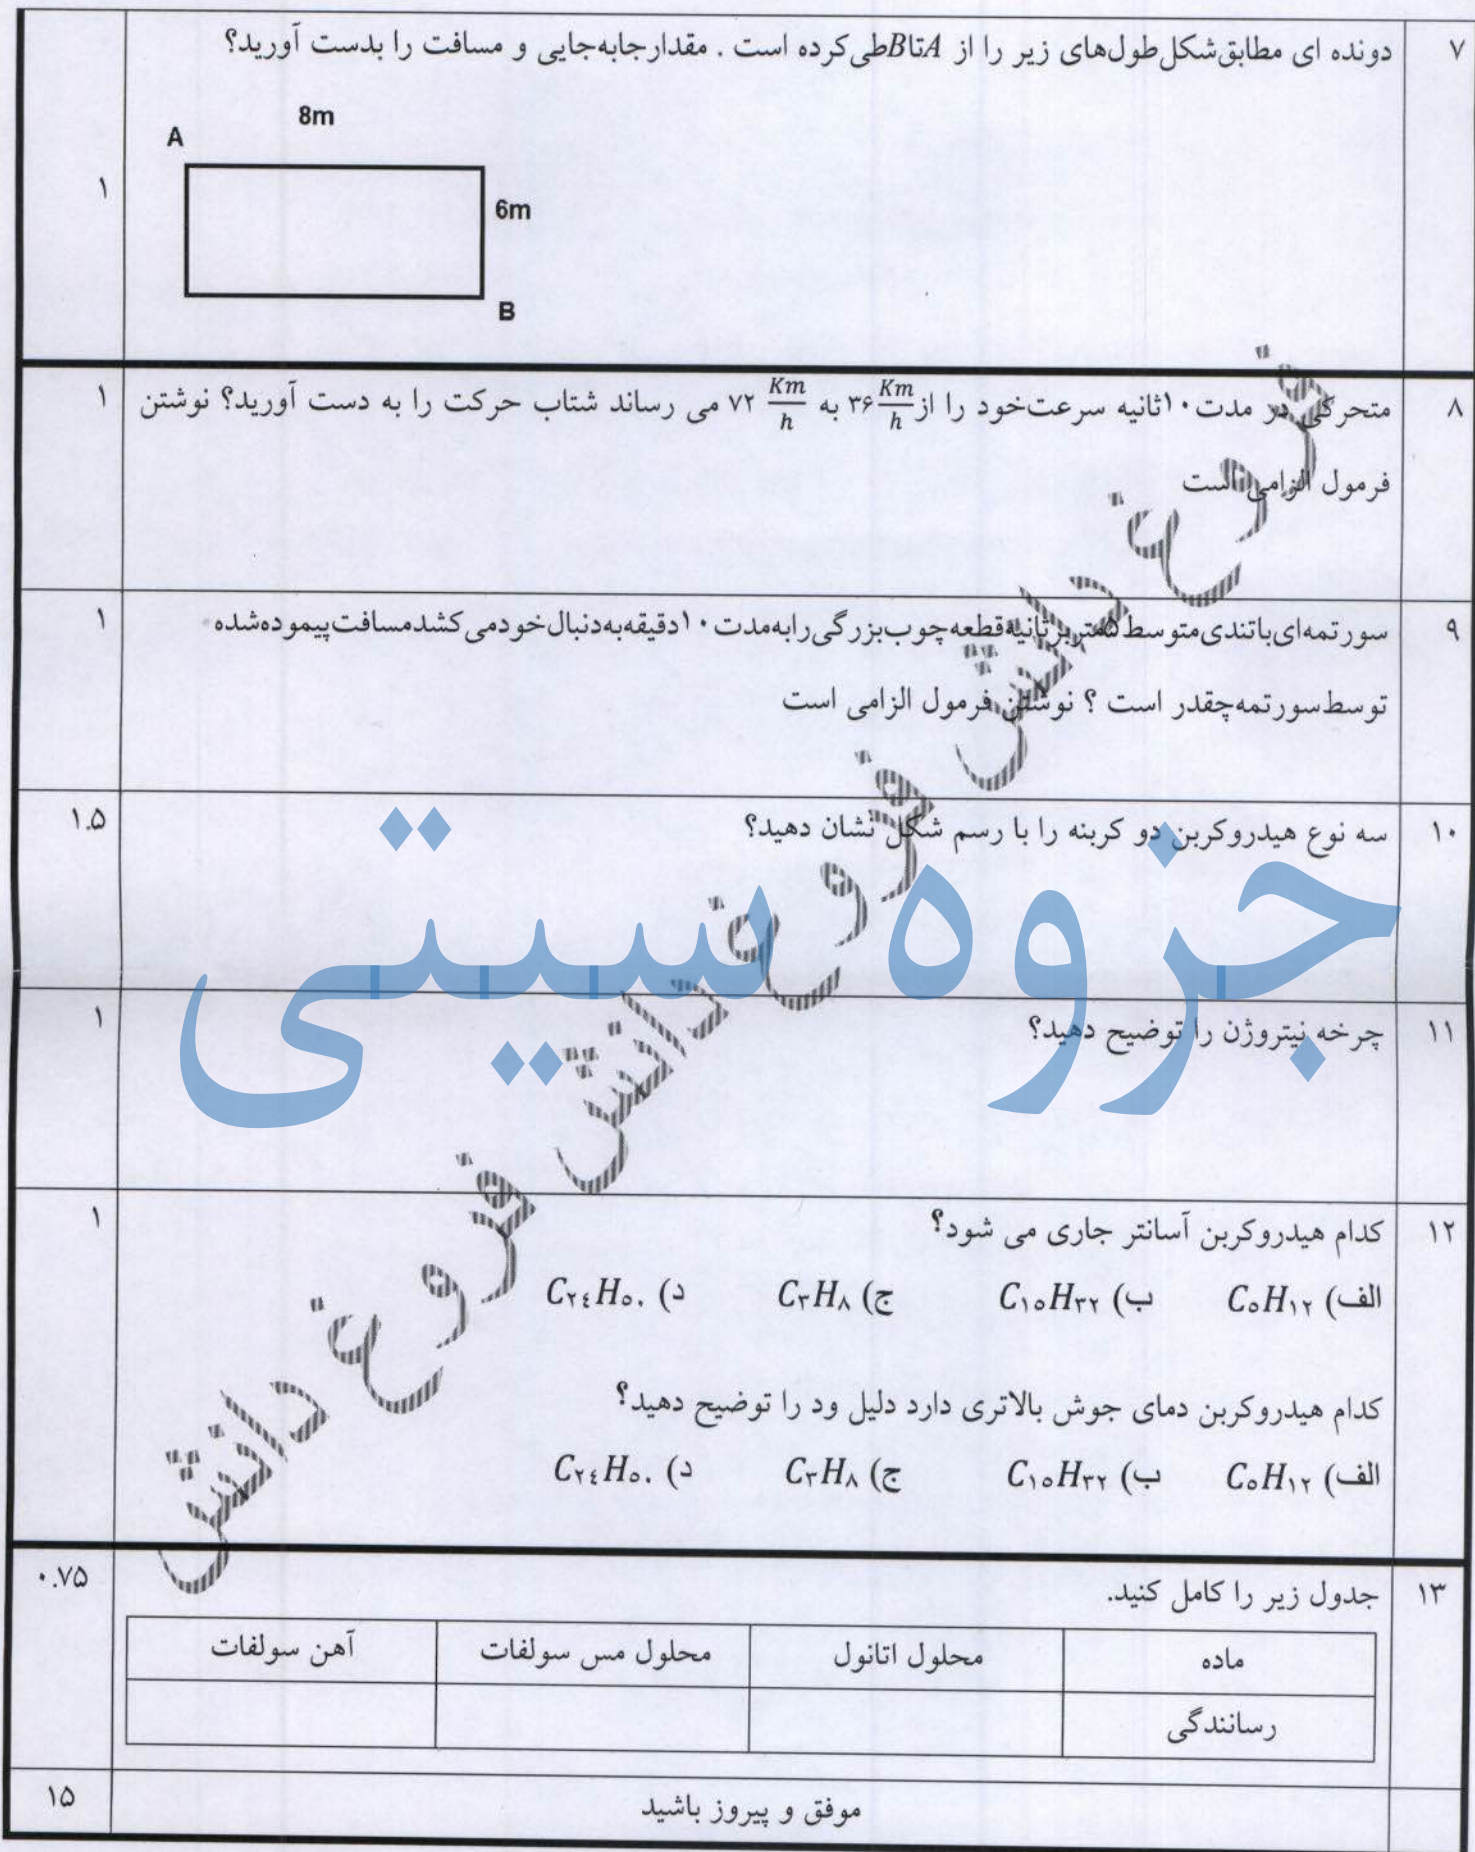 ۷ دونده ای مطابق شکل طول‌های زیر را از A تا B طی کرده است . مقدار جابه‌جایی و مسافت را بدست آورید؟
8m
A
۱
6m
B
۸ متحرکی در مدت ۱۰ ثانیه سرعت خود را از ۳۶ Km/h به ۷۲ Km/h می رساند شتاب حرکت را به دست آورید؟ نوشتن ۱
فرمول الزامی است
۹ سورتمه‌ای با تندی متوسط ۵ متر بر ثانیه قطعه چوب بزرگی را به مدت ۱۰ دقیقه به دنبال خود می کشد مسافت پیموده شده ۱
توسط سورتمه چقدر است ؟ نوشتن فرمول الزامی است
۱۰ سه نوع هیدروکربن دو کربنه را با رسم شکل نشان دهید؟ ۱.۵
۱۱ چرخه نیتروژن را توضیح دهید؟ ۱
۱۲ کدام هیدروکربن آسانتر جاری می شود؟ ۱
الف) C₅H₁₂ ب) C₁₅H₃₂ ج) C₃H₈ د) C₂₄H₅₀
کدام هیدروکربن دمای جوش بالاتری دارد دلیل ود را توضیح دهید؟
الف) C₅H₁₂ ب) C₁₅H₃₂ ج) C₃H₈ د) C₂₄H₅₀
۱۳ جدول زیر را کامل کنید. ۰.۷۵
ماده محلول اتانول محلول مس سولفات آهن سولفات
رسانندگی
موفق و پیروز باشید ۱۵
فروغ دانش فروغ دانش فروغ دانش
جزوه سیتی